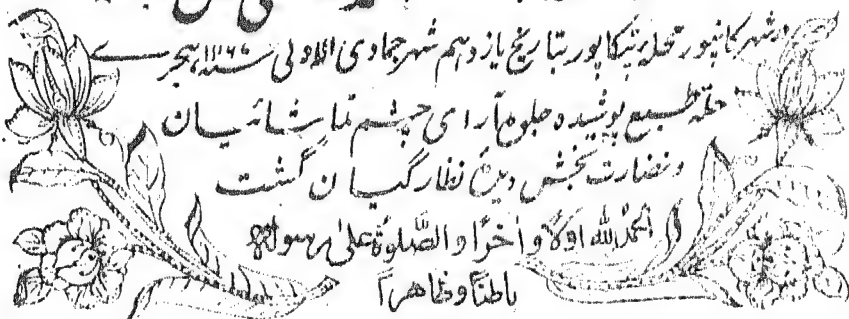 در شهر کانپور محله پٹکاپور بتاریخ یازدهم شهر جمادی الاولی سنه هجری
حله طبع پوشیده جلوه آرای چشم تماشائیان
و نضارت بخش دیدهٔ نظارگیان گشت
الحمدُ لله اولاً و اٰخراً و الصَّلوٰةُ علیٰ رسوله
باطناً و ظاهراً